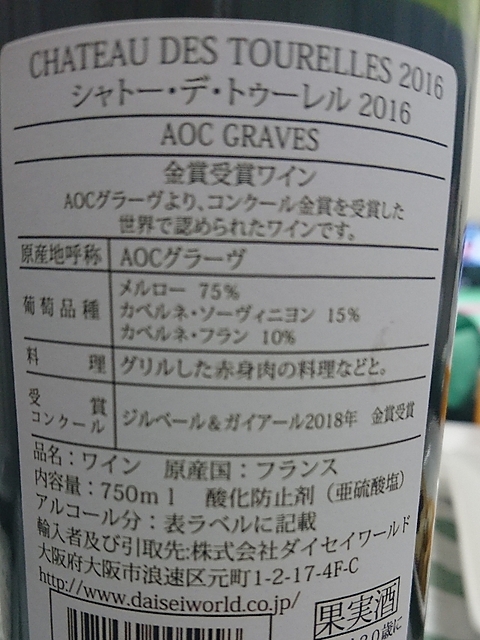 CHATEAU DES TOURELLES 2016
シャトー・デ・トゥーレル 2016
AOC GRAVES
金賞受賞ワイン
AOCグラーヴより、コンクール金賞を受賞した
世界で認められたワインです。
原産地呼称 AOCグラーヴ
葡萄品種 メルロー 75%
カベルネ・ソーヴィニヨン 15%
カベルネ・フラン 10%
料理 グリルした赤身肉の料理などと。
受賞コンクール ジルベール&ガイアール2018年 金賞受賞
品名:ワイン 原産国:フランス
内容量:750ml 酸化防止剤(亜硫酸塩)
アルコール分:表ラベルに記載
輸入者及び引取先:株式会社ダイセイワールド
大阪府大阪市浪速区元町1-2-17-4F-C
http://www.daiseiworld.co.jp/
果実酒